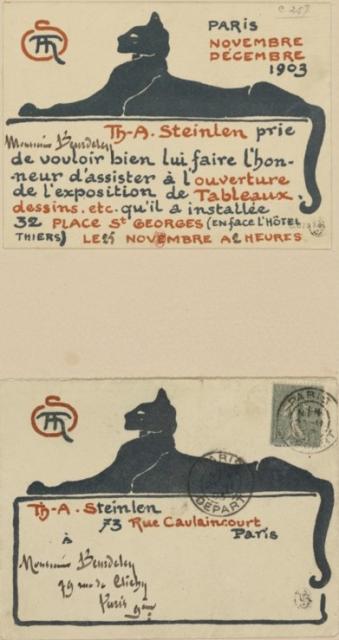 PARIS
NOVEMBRE
DÉCEMBRE
1903
Th-A. Steinlen prie
Monsieur Beurdeley
de vouloir bien lui faire l'hon-
neur d'assister à l'ouverture
de l'exposition de Tableaux.
dessins. etc. qu'il a installée
32 PLACE St GEORGES (EN face L'HÔTEL
THIERS) LE 25 NOVEMBRE A 2 HEURES
PARIS
PARIS
DEPART
Th-A. Steinlen
73 Rue Caulaincourt
Paris
à
Monsieur Beurdeley
79 rue de Clichy
Paris 9eme